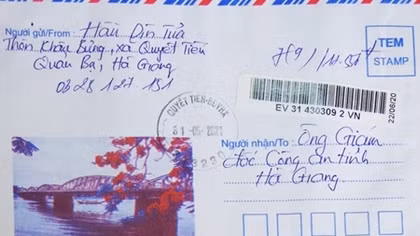 Người gửi/From: Hầu Dìn Tuả
Thôn Khâu Bủng, xã Quyết Tiến
Quản Bạ, Hà Giang
0828 127 151
TEM
STAMP
EV 31 430309 2 VN
22/06/20
QUYẾT TIẾN
31-05-2021
Người nhận/To: Ông Giám
đốc Công an tỉnh
Hà Giang.